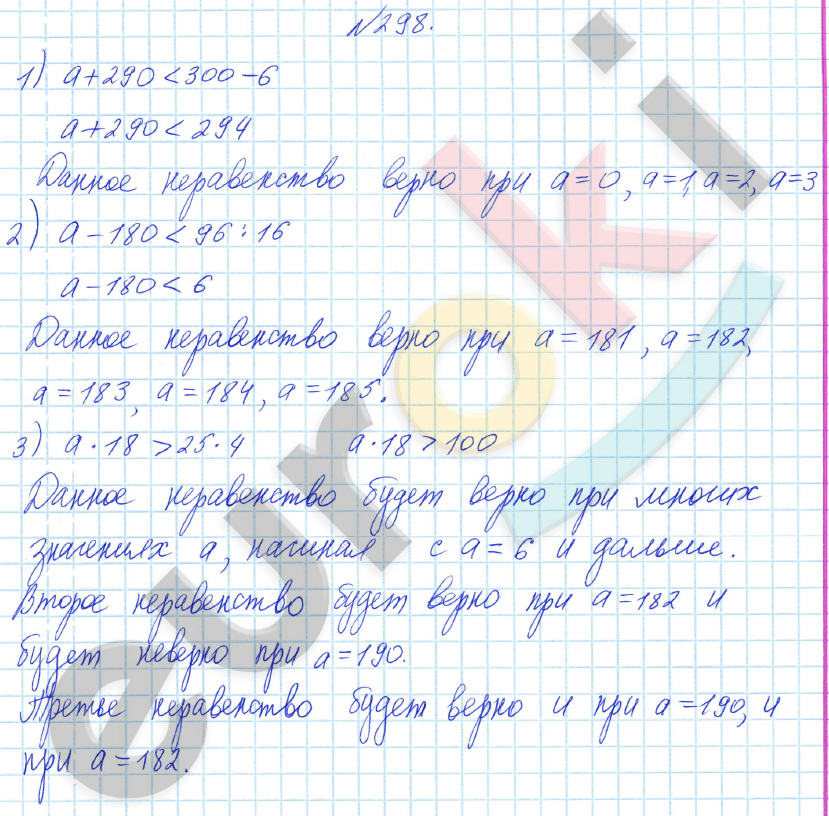 №298.
1) a+290<300-6
a+290<294
Данное неравенство верно при a=0, a=1, a=2, a=3
2) a-180<96:16
a-180<6
Данное неравенство верно при a=181, a=182,
a=183, a=184, a=185.
3) a·18>25·4 a·18>100
Данное неравенство будет верно при многих
значениях a, начиная с a=6 и дальше.
Второе неравенство будет верно при a=182 и
будет неверно при a=190.
Третье неравенство будет верно и при a=190, и
при a=182.
euroki